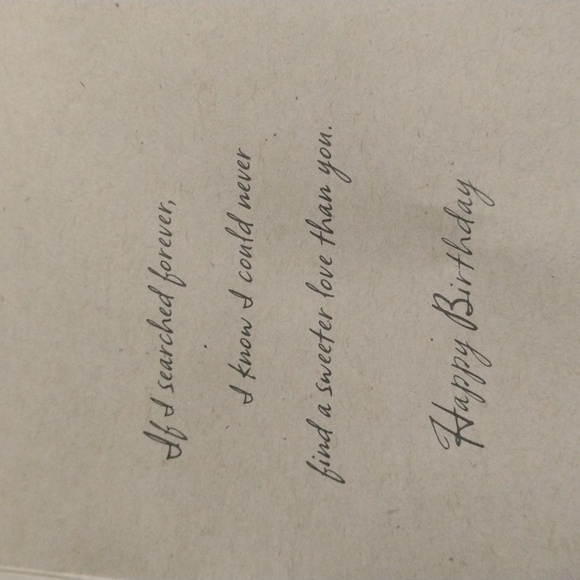 If I searched forever,
I know I could never
find a sweeter love than you.
Happy Birthday